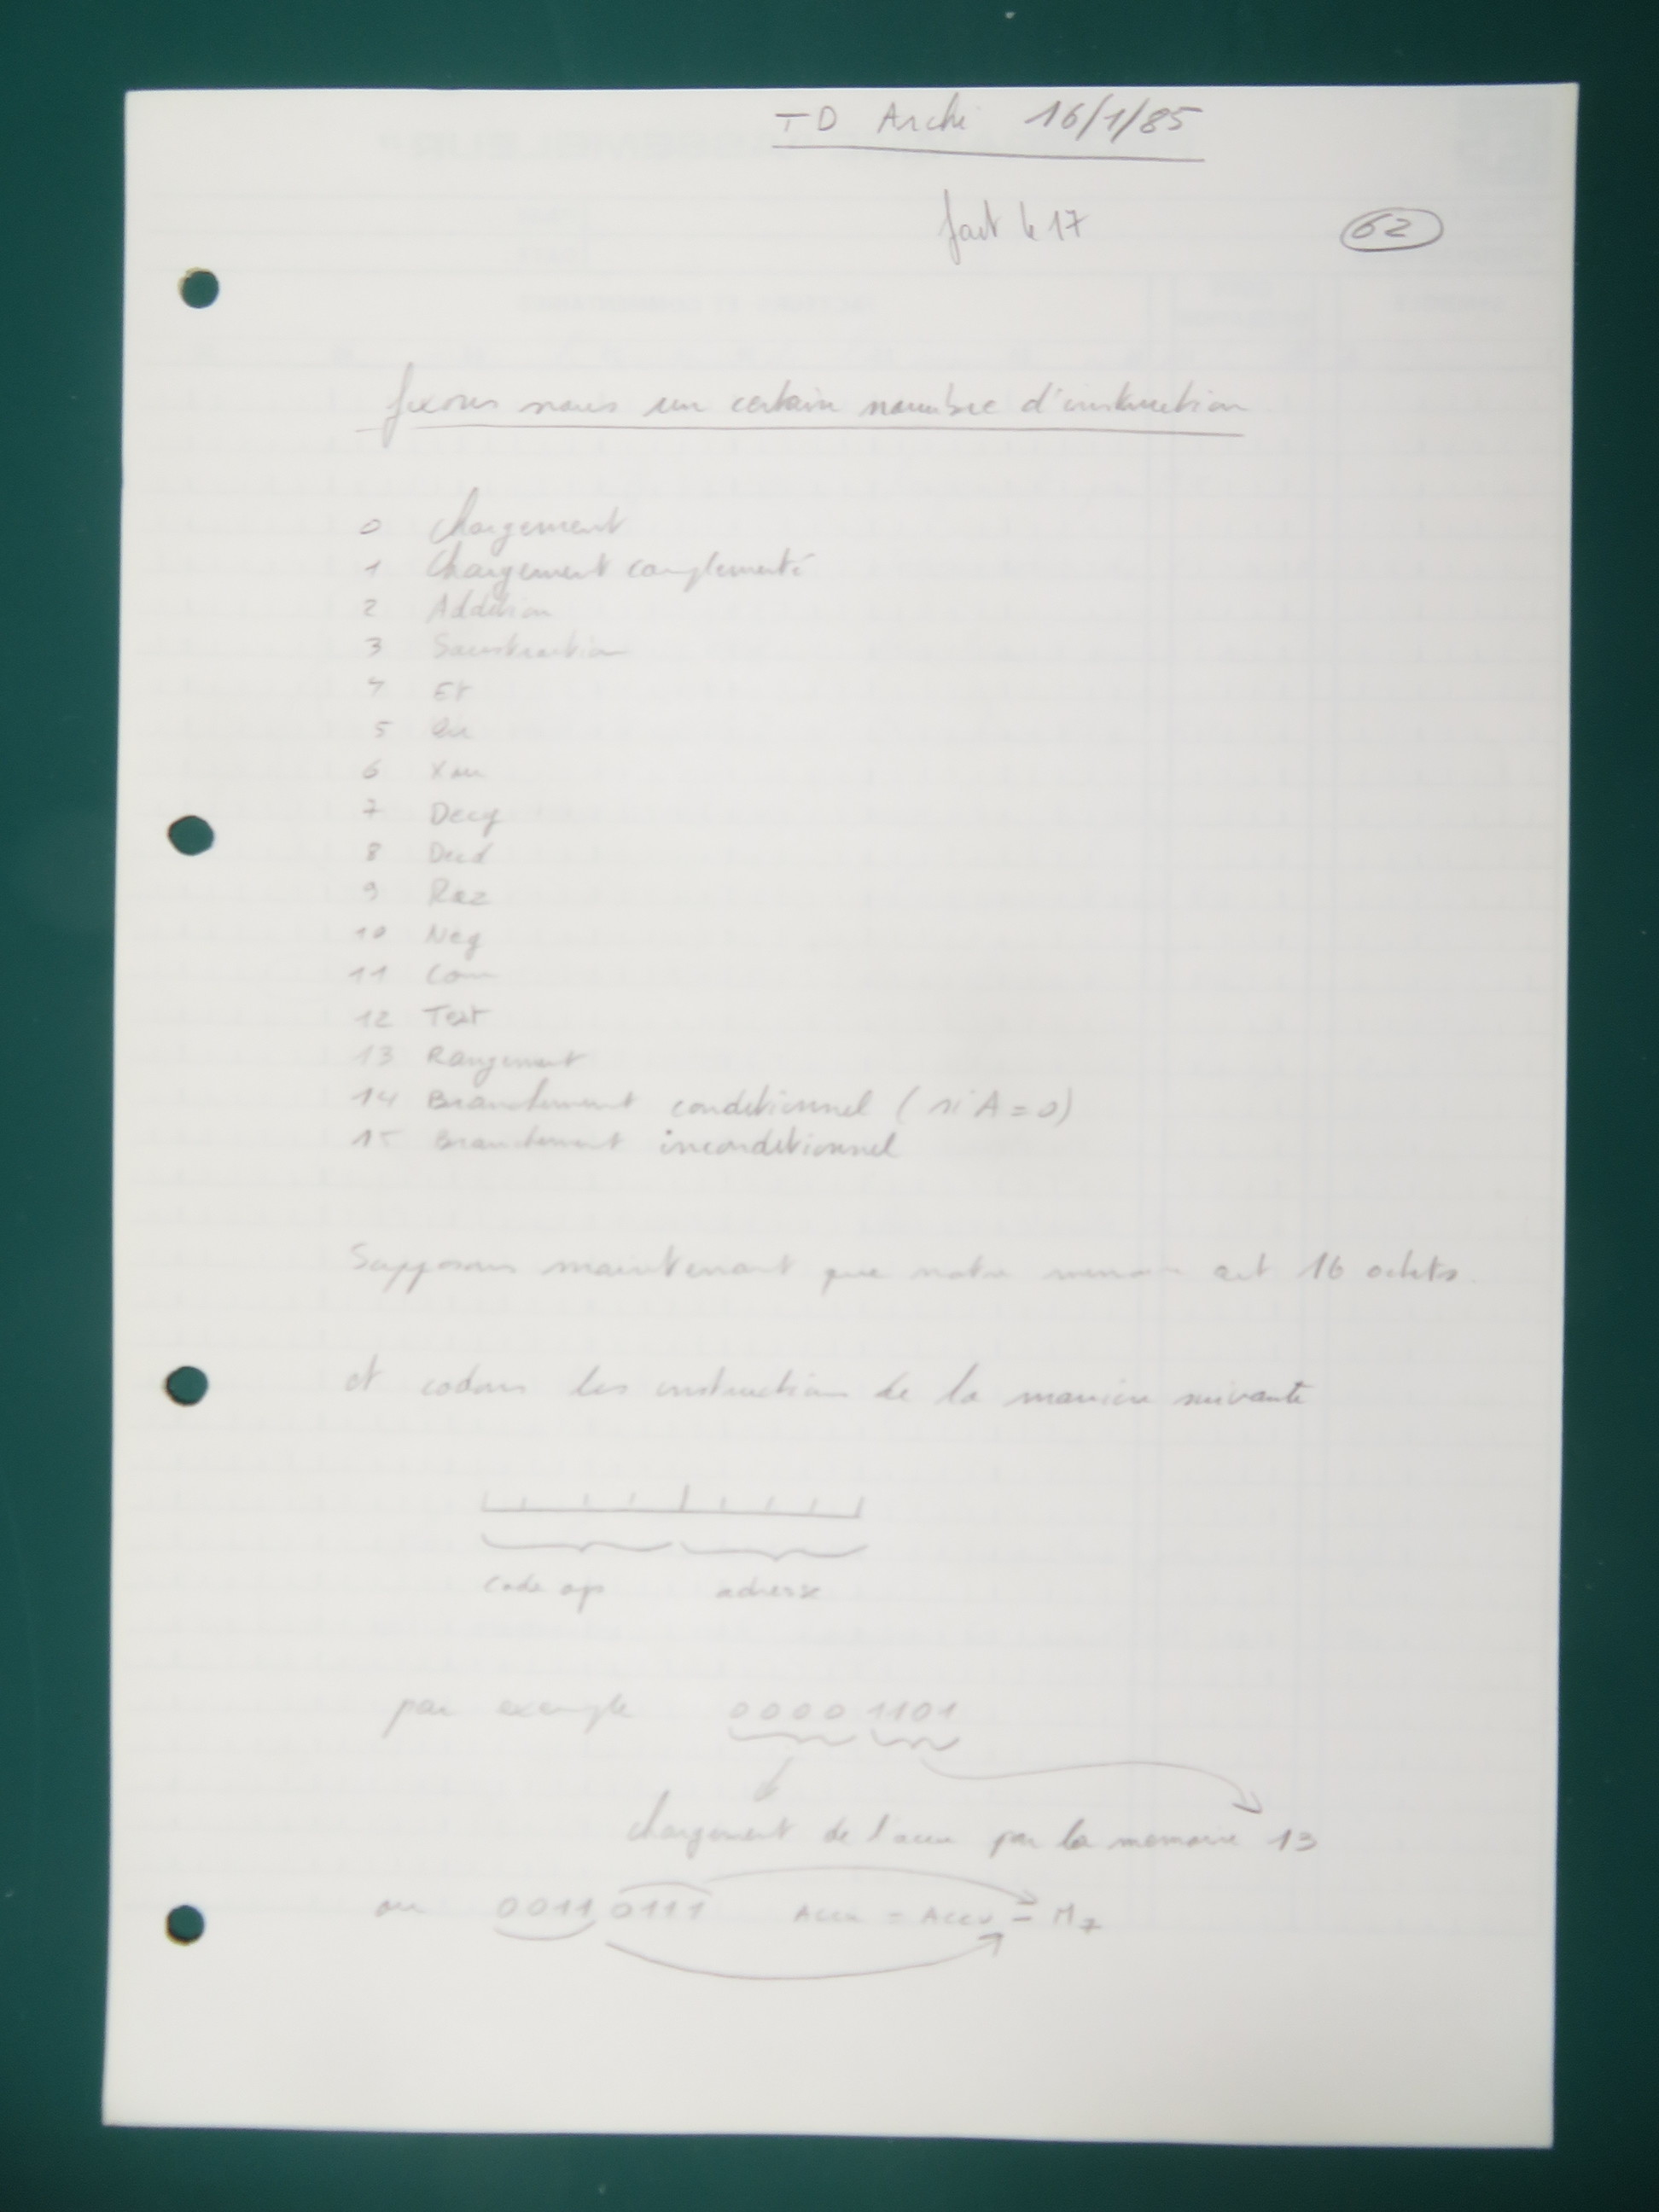 TD Archi 16/1/85
fait le 17
62
fixons nous un certain nombre d'instruction
0 Chargement
1 Chargement complementé
2 Addition
3 Soustraction
4 Et
5 Ou
6 Xou
7 Decg
8 Decd
9 Raz
10 Neg
11 Com
12 Test
13 Rangement
14 Branchement conditionnel (si A = 0)
15 Branchement inconditionnel
Supposons maintenant que notre memoire ait 16 octets
et codons les instruction de la manière suivante
code op adresse
par exemple 0000 1101
chargement de l'accu par la memoire 13
ou 0011 0111 Accu = Accu - M7